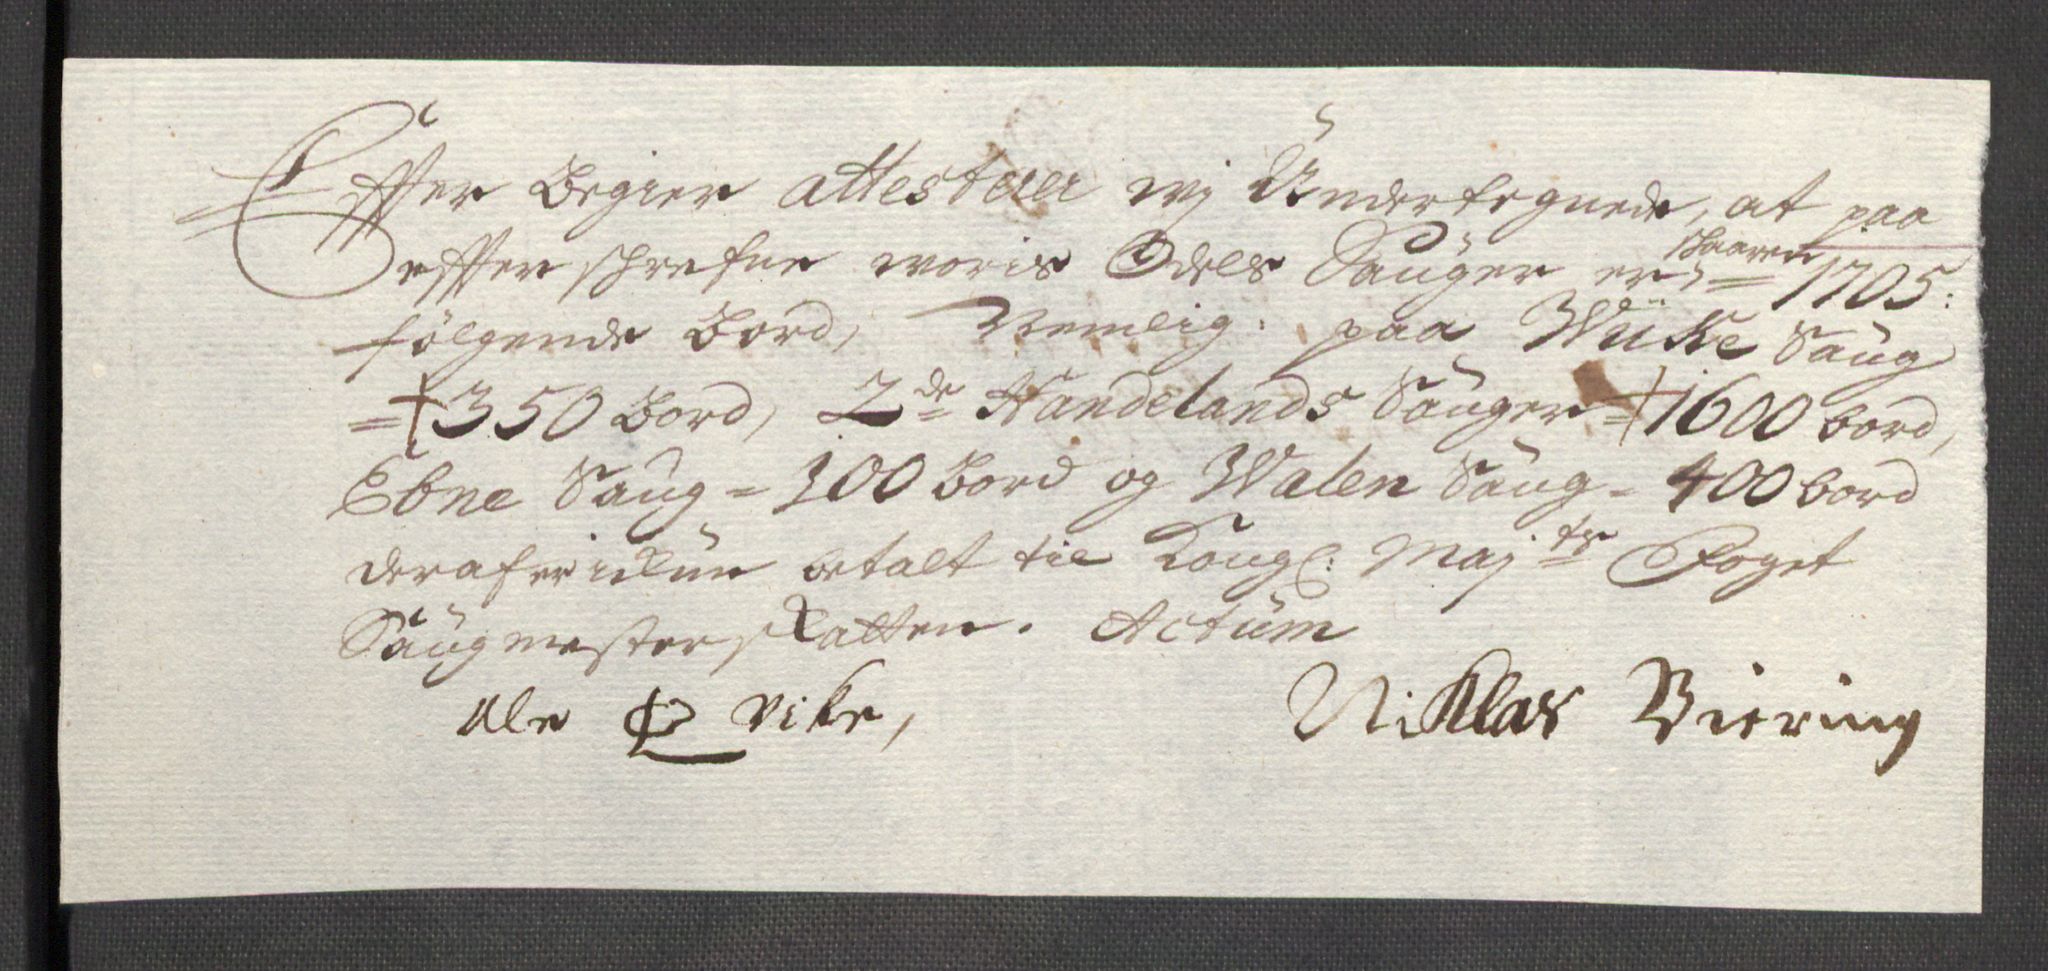 Effter Begier attesterer wj Undertegnede, at paa
effterschrefne woris Odels Sauger er, skaaren = 1705:
følgende Bord, Nemlig. paa Wüke Saug
= 350 Bord, 2de Handelands Sauger = 1600 bord,
Ebne Saug = 100 Bord og Walen Saug = 400 bord
deraf vi betalt til Kongl: Majts Foget
Saugmesterskatten. Actum
Ole Vike, Niklas Viering